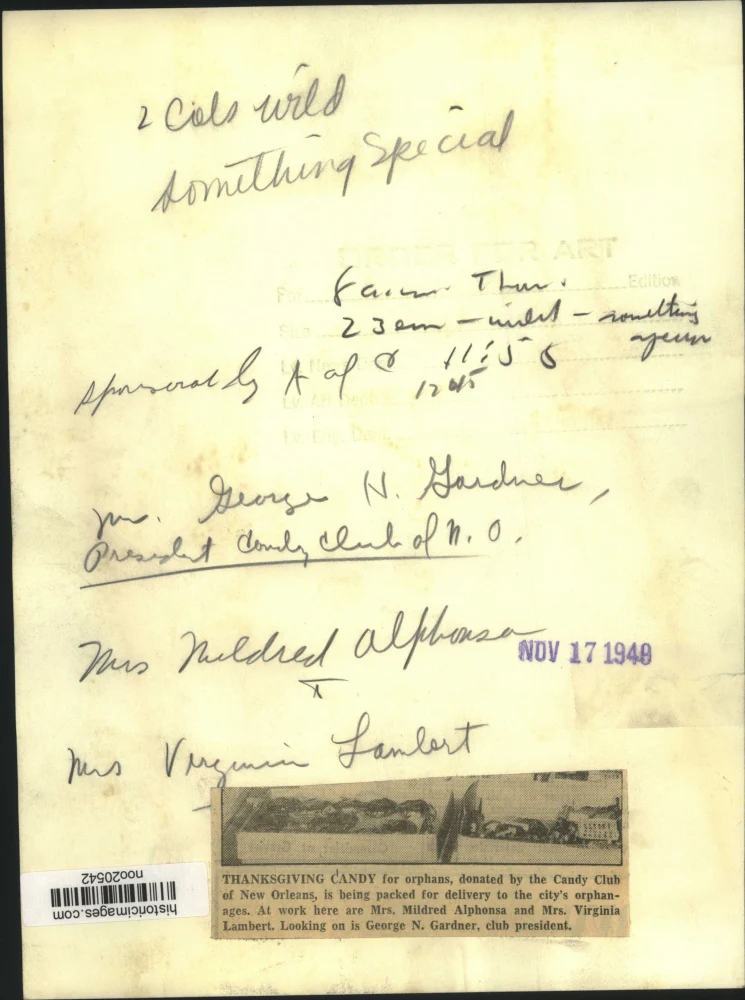 2 Cols wild
something special
ORDER FOR ART
For Edition
Size
23 em - - something
Thur.
11:55
1245
sponsored by A of C
Mr. George N. Gardner,
President Candy Club of N. O.
Mrs Mildred Alphonsa
NOV 17 1949
Mrs Virginia Lambert
THANKSGIVING CANDY for orphans, donated by the Candy Club
of New Orleans, is being packed for delivery to the city's orphan-
ages. At work here are Mrs. Mildred Alphonsa and Mrs. Virginia
Lambert. Looking on is George N. Gardner, club president.
historicimages.com
noo20542